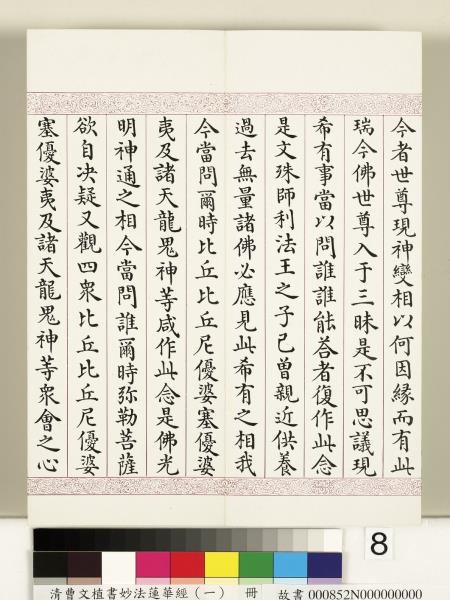 今者世尊現神變相以何因緣而有此
瑞今佛世尊入于三昧是不可思議現
希有事當以問誰誰能荅者復作此念
是文殊師利法王之子已曾親近供養
過去無量諸佛必應見此希有之相我
今當問爾時比丘比丘尼優婆塞優婆
夷及諸天龍鬼神等咸作此念是佛光
明神通之相今當問誰爾時弥勒菩薩
欲自決疑又觀四眾比丘比丘尼優婆
塞優婆夷及諸天龍鬼神等眾會之心
8
清曹文植書妙法蓮華經(一) 冊 故書 000852N000000000